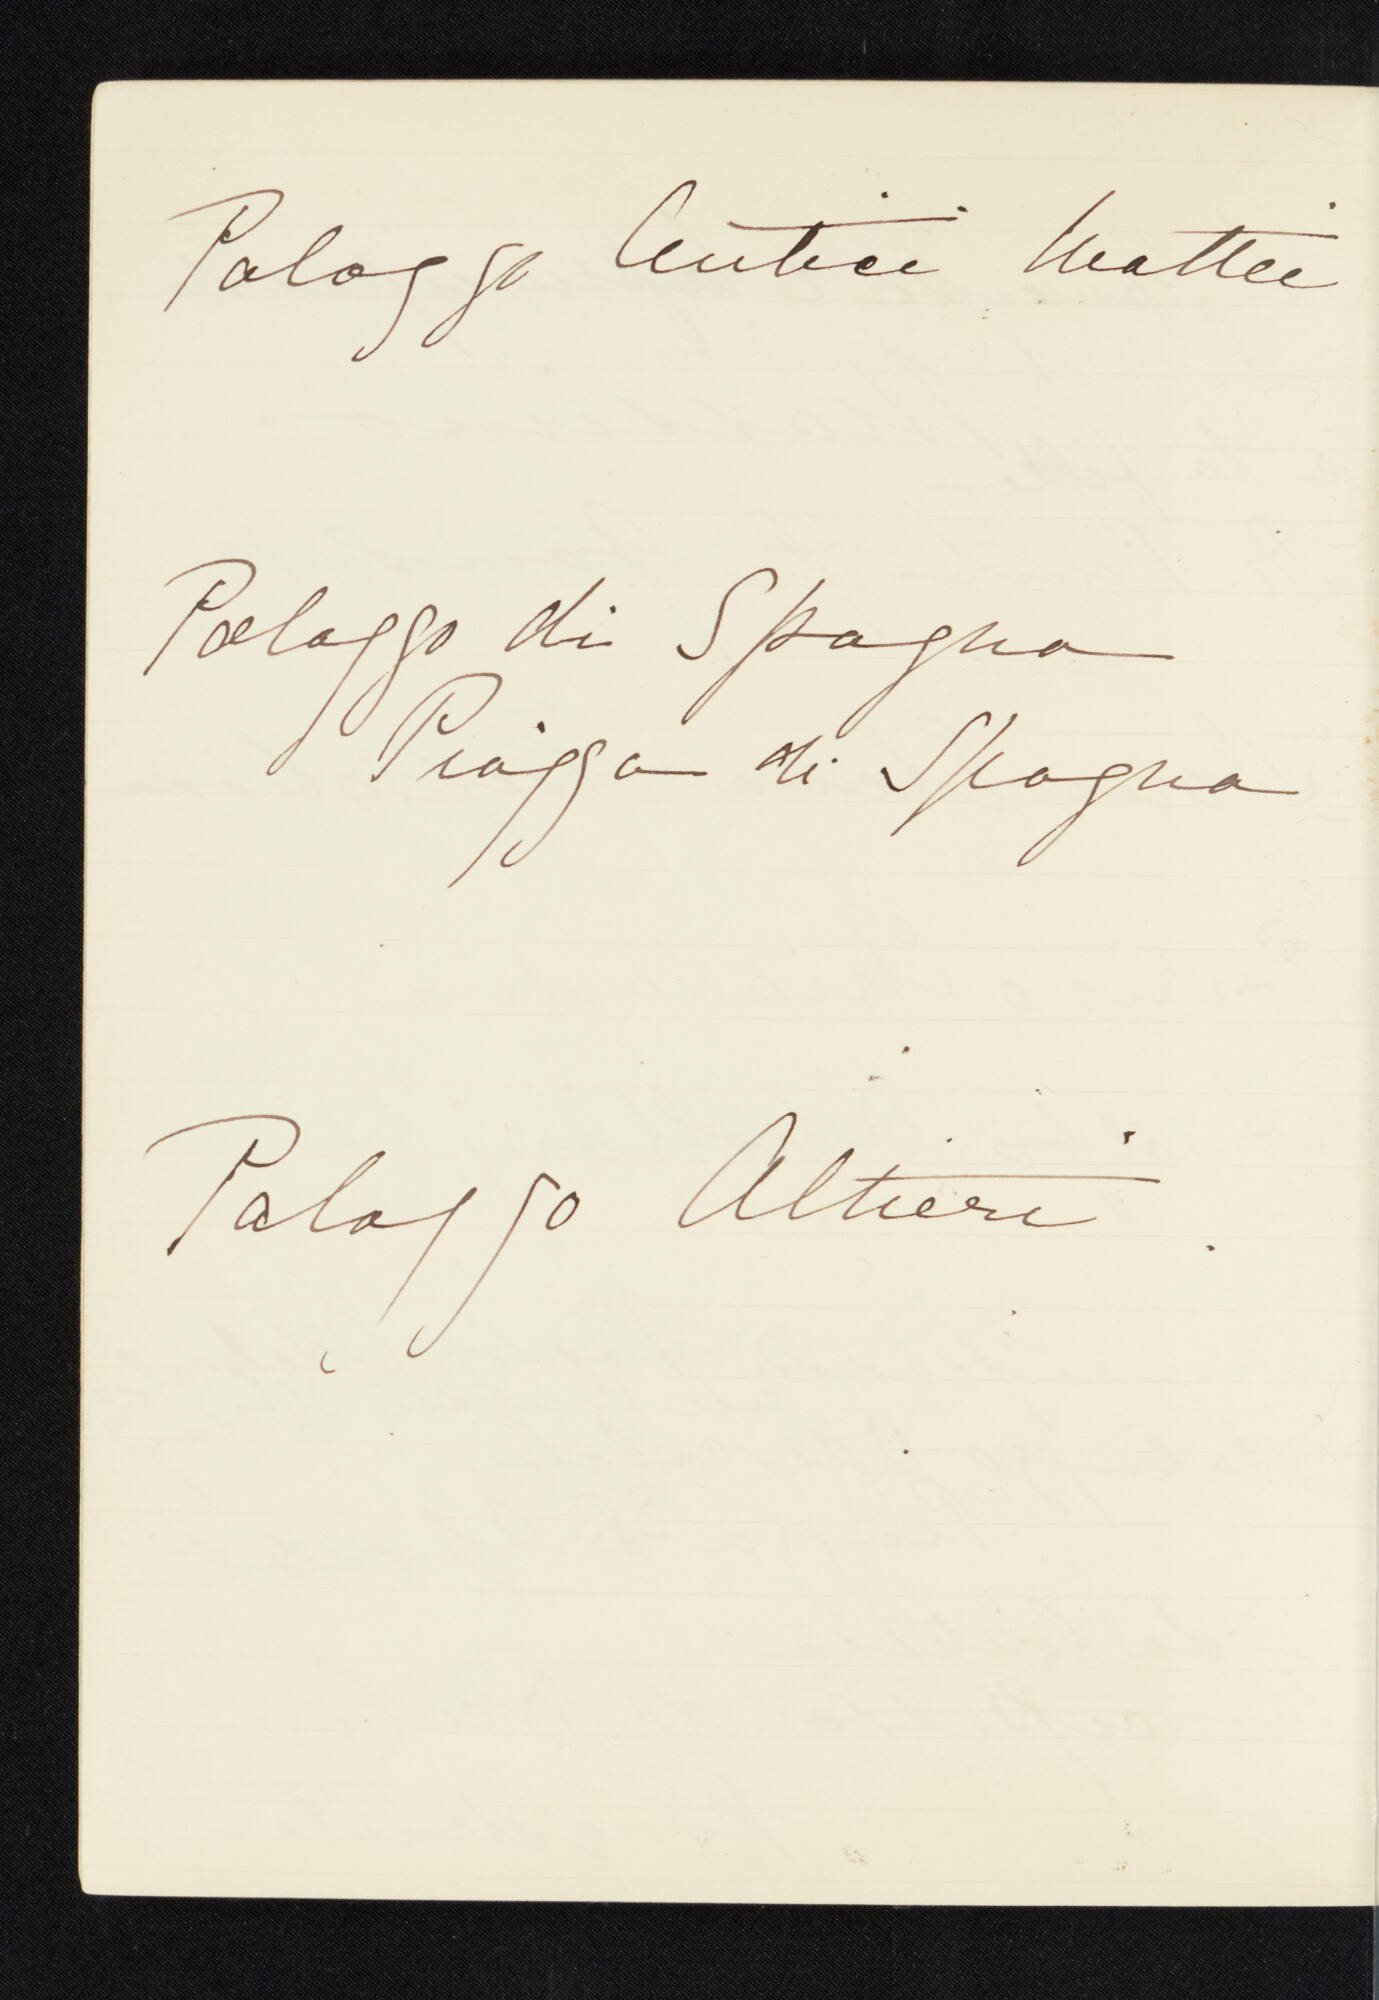 Palazzo Antici Mattei
Palazzo di Spagna
Piazza di Spagna
Palazzo Altieri